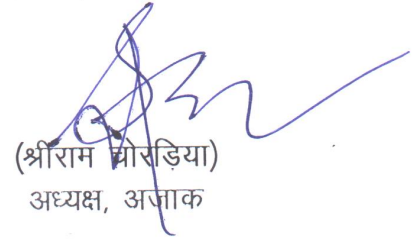 (श्रीराम चोरड़िया)
अध्यक्ष, अजाक